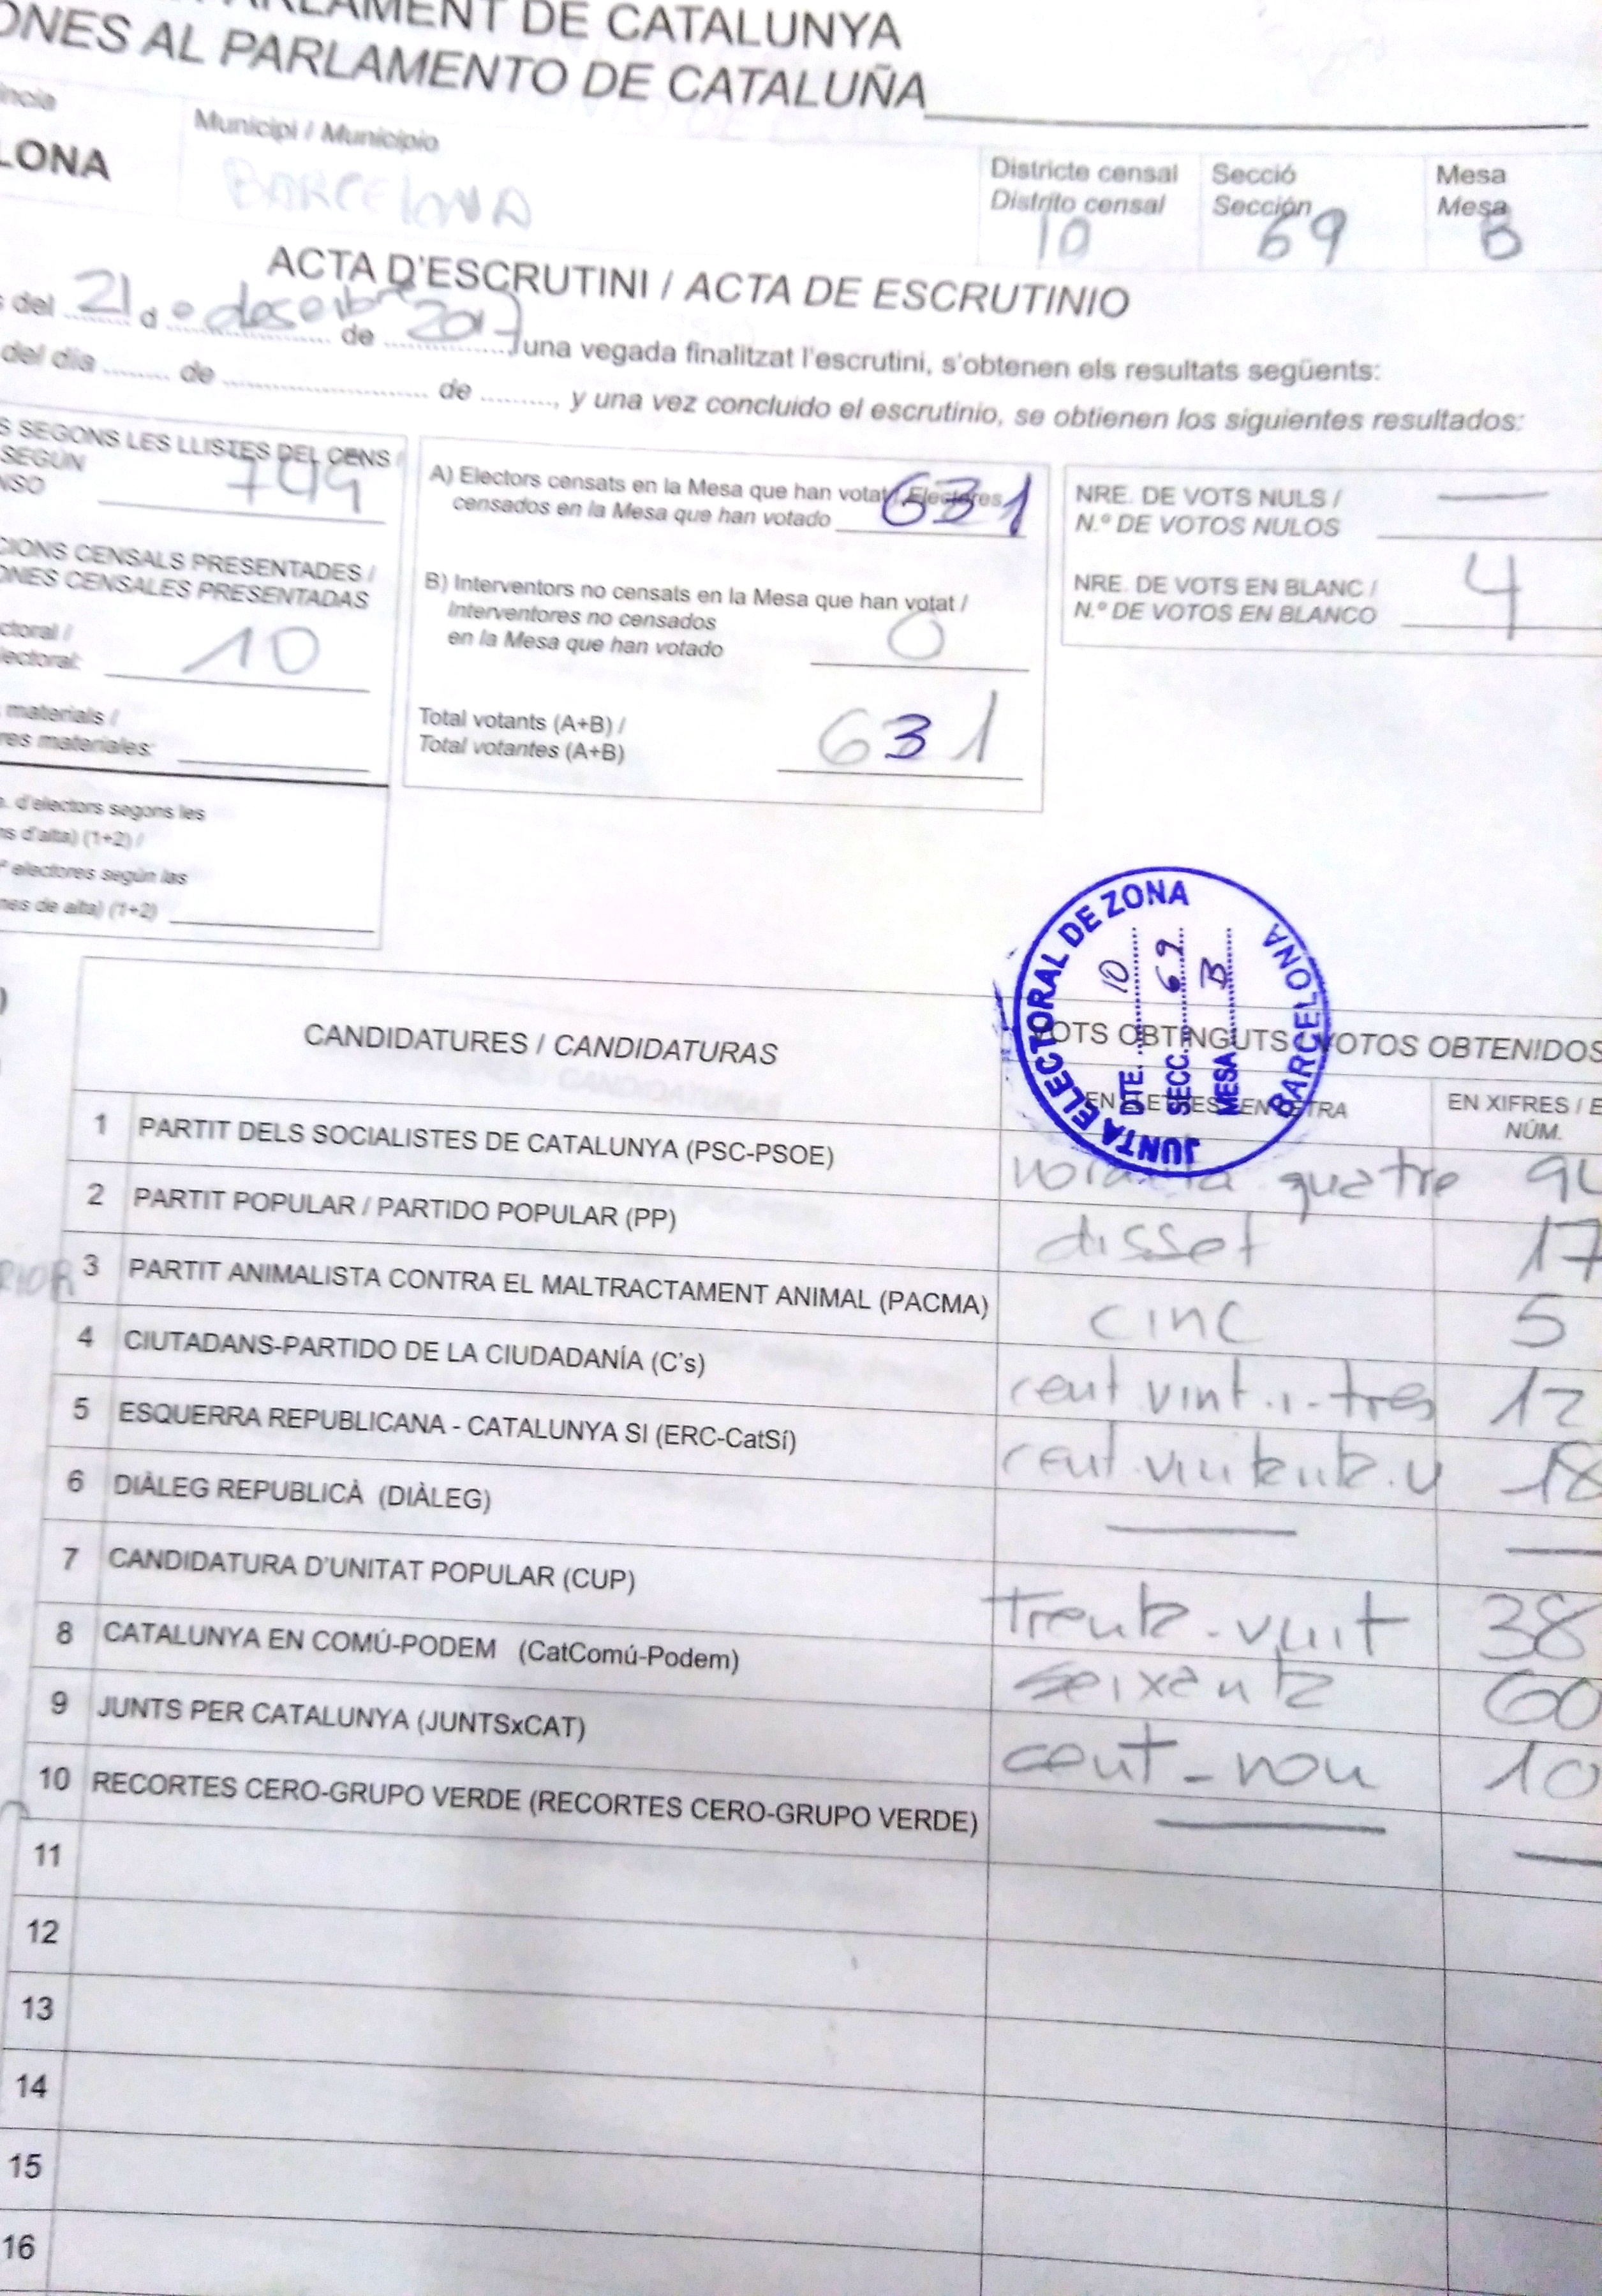 PARLAMENT DE CATALUNYA
ONES AL PARLAMENTO DE CATALUÑA
Municipi / Municipio
LONA
BARCELONA
Districte censal
Distrito censal
10
Secció
Sección
69
Mesa
Mesa
B
ACTA D'ESCRUTINI / ACTA DE ESCRUTINIO
del 21 d e desembre de 2017, una vegada finalitzat l'escrutini, s'obtenen els resultats següents:
del día ........ de .......................... de ........., y una vez concluido el escrutinio, se obtienen los siguientes resultados:
S SEGONS LES LLISTES DEL CENS /
SEGÚN
NSO 749
CIONS CENSALS PRESENTADES /
ONES CENSALES PRESENTADAS
ctoral /
lectoral: 10
materials /
res materiales:
. d'electors segons les
ns d'alta) (1+2) /
electores según las
nes de alta) (1+2)
A) Electors censats en la Mesa que han votat / Electores
censados en la Mesa que han votado 631
B) Interventors no censats en la Mesa que han votat /
Interventores no censados
en la Mesa que han votado 0
Total votants (A+B) /
Total votantes (A+B) 631
NRE. DE VOTS NULS / —
N.º DE VOTOS NULOS
NRE. DE VOTS EN BLANC /
N.º DE VOTOS EN BLANCO 4
JUNTA ELECTORAL DE ZONA
BARCELONA
DTE. 10
SECC. 69
MESA B
CANDIDATURES / CANDIDATURAS
VOTS OBTINGUTS / VOTOS OBTENIDOS
EN LLETRES / EN LETRA
EN XIFRES / E
NÚM.
1 PARTIT DELS SOCIALISTES DE CATALUNYA (PSC-PSOE) noranta quatre 94
2 PARTIT POPULAR / PARTIDO POPULAR (PP) disset 17
3 PARTIT ANIMALISTA CONTRA EL MALTRACTAMENT ANIMAL (PACMA) cinc 5
4 CIUTADANS-PARTIDO DE LA CIUDADANÍA (C's) cent vint-i-tres 12
5 ESQUERRA REPUBLICANA - CATALUNYA SI (ERC-CatSí) cent vuitanta-u 18
6 DIÀLEG REPUBLICÀ (DIÀLEG) — —
7 CANDIDATURA D'UNITAT POPULAR (CUP) Trenta-vuit 38
8 CATALUNYA EN COMÚ-PODEM (CatComú-Podem) seixanta 60
9 JUNTS PER CATALUNYA (JUNTSxCAT) cent-nou 10
10 RECORTES CERO-GRUPO VERDE (RECORTES CERO-GRUPO VERDE) — —
11
12
13
14
15
16